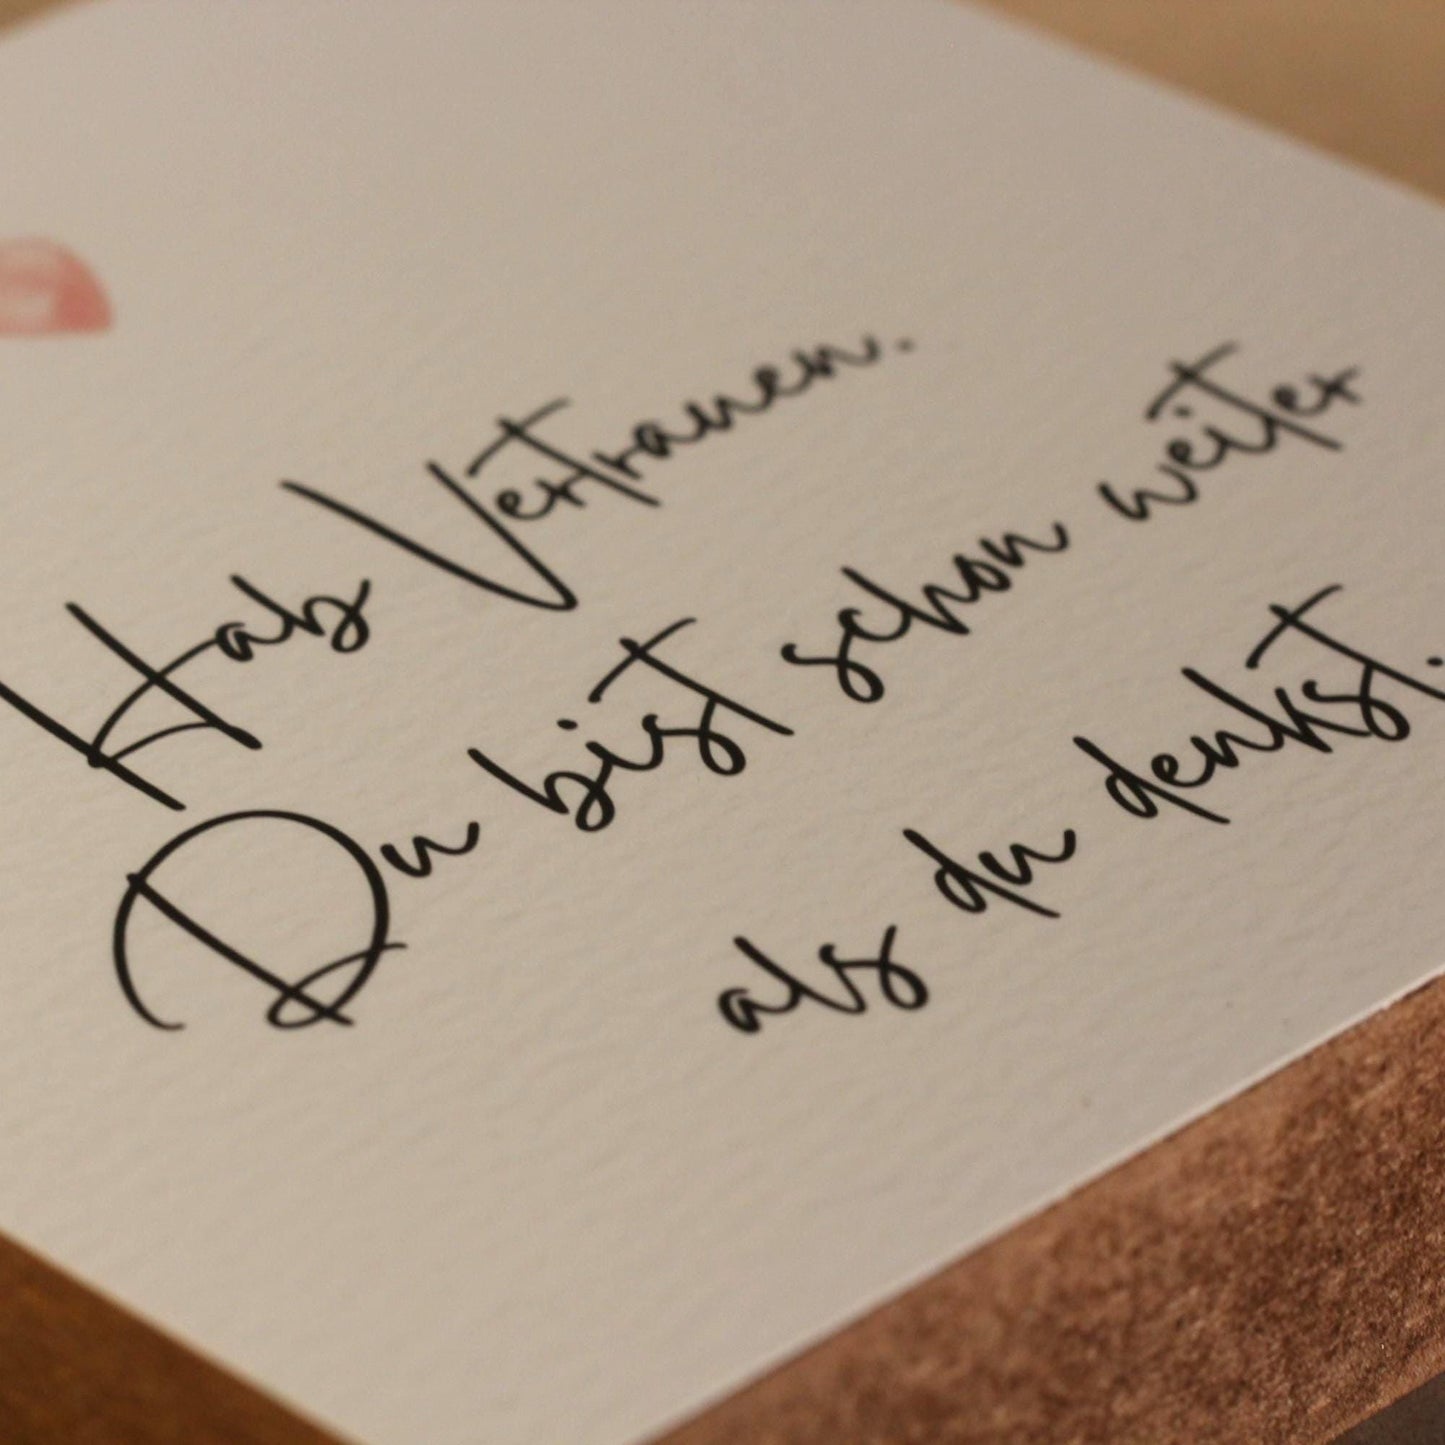 Hab Vertrauen.
Du bist schon weiter
als du denkst.